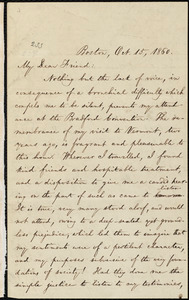 Boston, Oct. 15, 1860.
My Dear Friend:
Nothing but the lack of voice, in
consequence of a bronchial difficulty which
compels me to be silent, prevents my attend-
ance at the Bradford Convention. The re-
membrance of my visit to Vermont, two
years ago, is fragrant and pleasurable to
this hour. Wherever I travelled, I found
kind friends and hospitable treatment,
and a disposition to give me a candid hearing
on the part of such as came to listen.
It is true, very many stood aloof, and would
not attend, owing to a deep-seated yet ground-
less prejudice, which led them to imagine that
my sentiments were of a pestilent character,
and my purposes subversive of the very foun-
dations of society! Had they done me the
simple justice to listen to my testimonies,